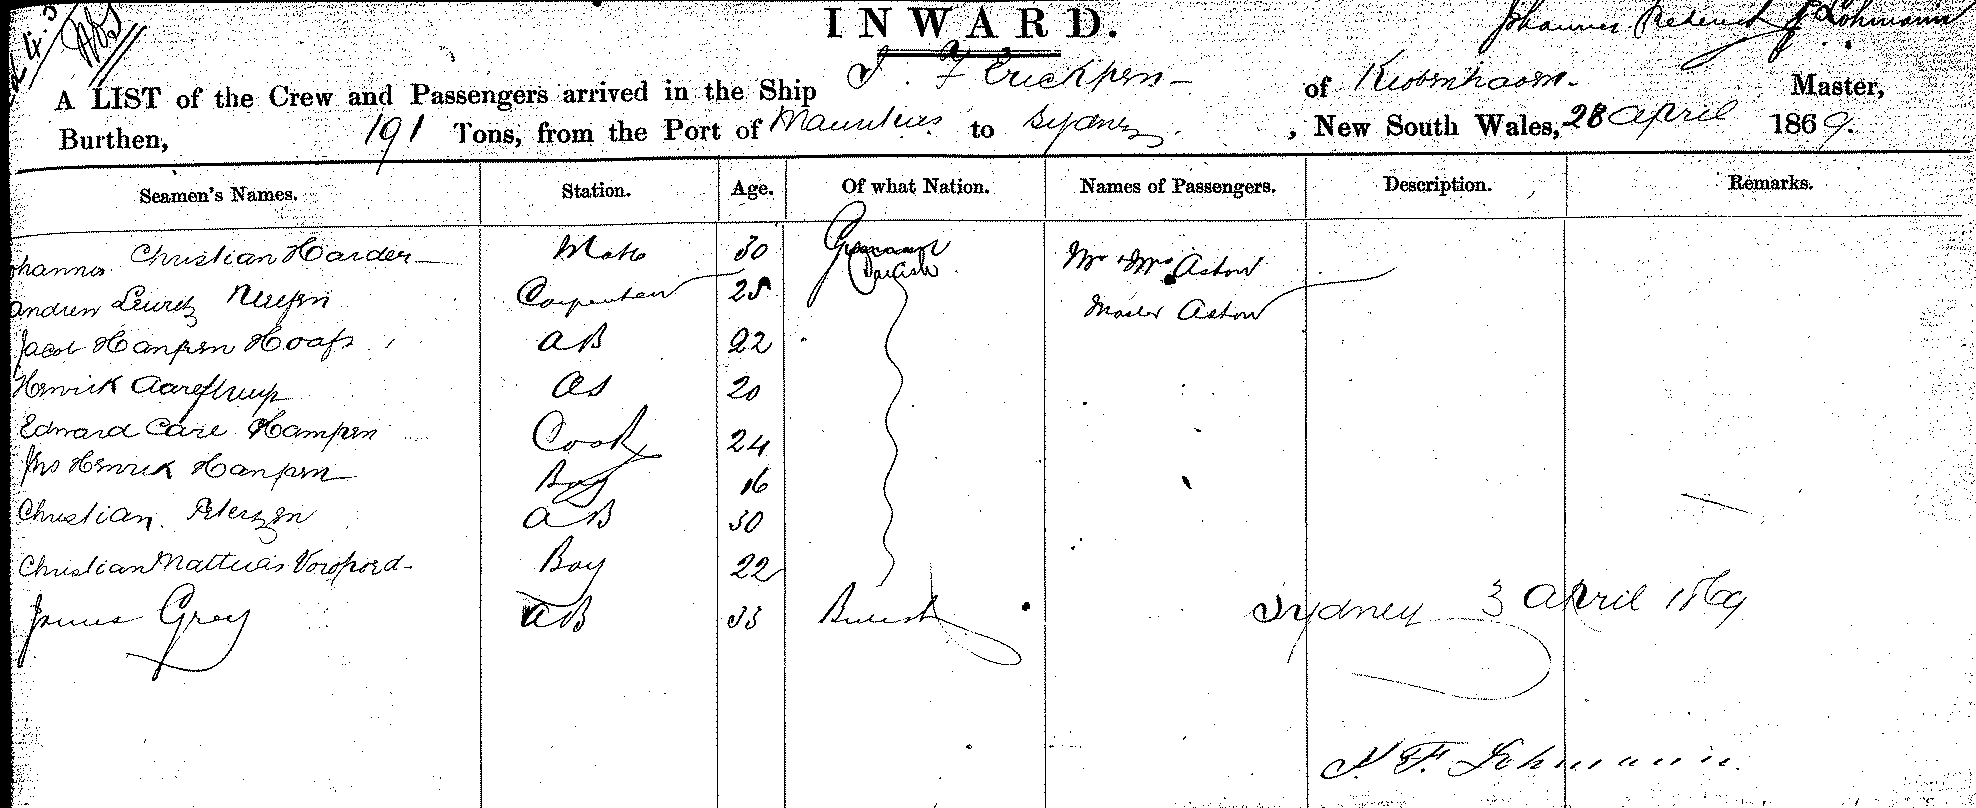 INWARD.
Johannes Lohmann
A LIST of the Crew and Passengers arrived in the Ship J. F Erickssen of Kiobenhaven. Master,
Burthen, 191 Tons, from the Port of Mauritius to Sydney, New South Wales, 28 April 1869.
Seamen's Names. Station. Age. Of what Nation. Names of Passengers. Description. Remarks.
Johannes Christian Harder Mate 30 German Danish Mr & Mrs Aston
Andrew Carpenter 25 Master Aston
Jacob Hanssen AB 22
Henrick Aarestrup OS 20
Edward Carl Hanssen Cook 24
Jns Henrick Hanssen Boy 16
Christian Peterzen AB 30
Christian Mattias Boy 22
James Grey AB 33 British
Sydney 3 April 1869
J. F. Lohmann